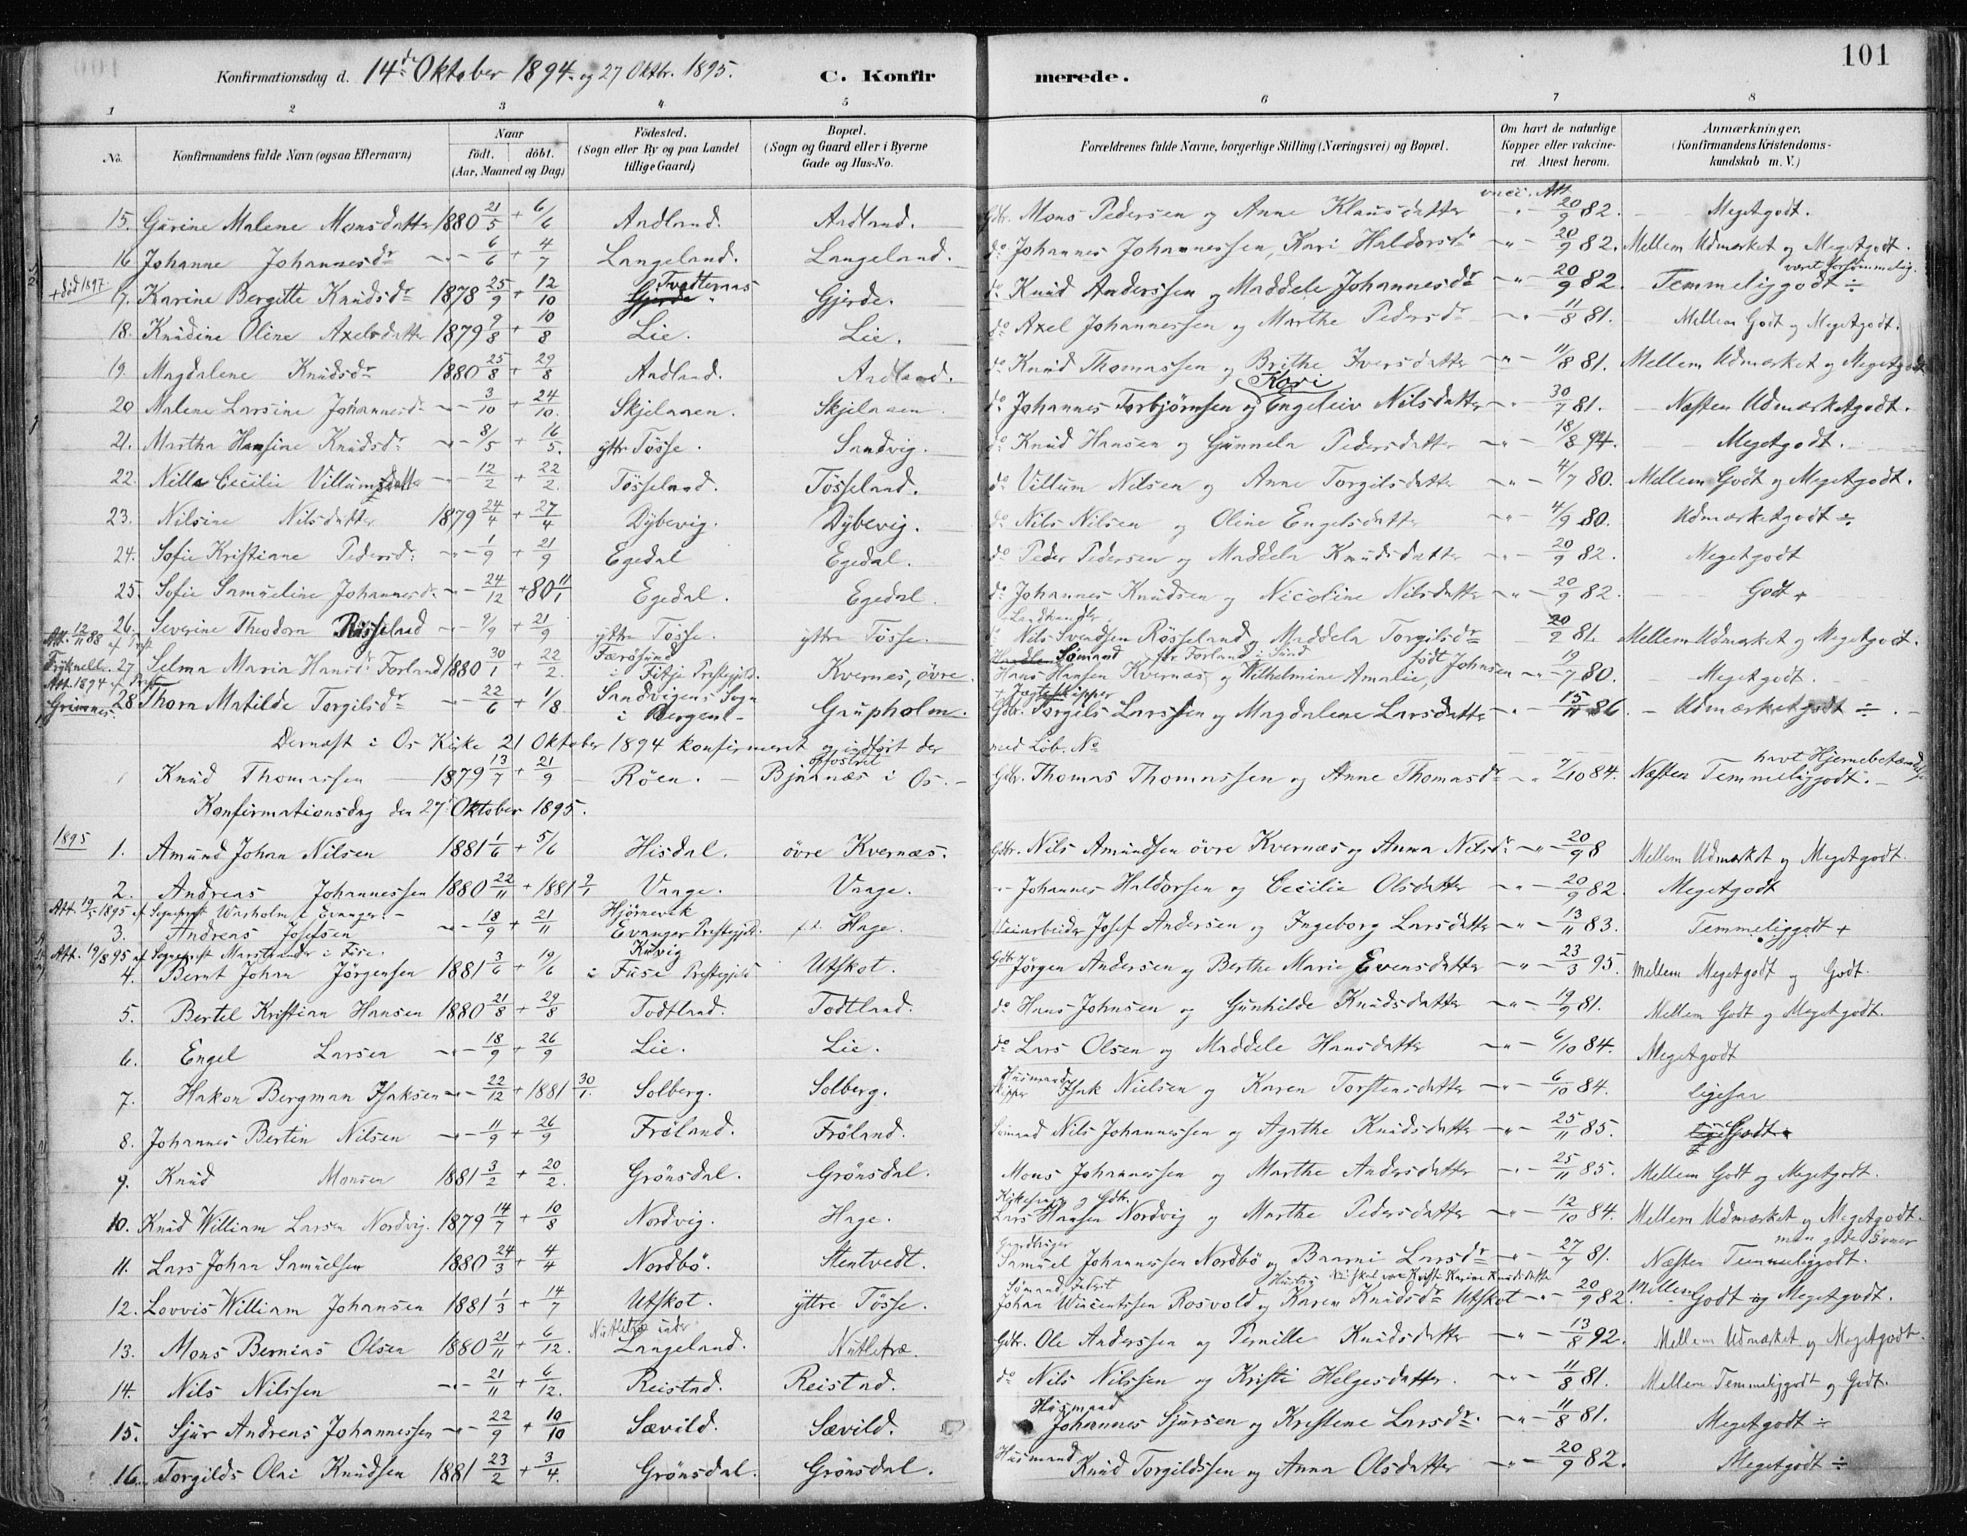 101
Konfirmationsdag d. 14de Oktober 1894 og 27 Oktbr. 1895. C. Konfirmerede.
1 2 3 4 5 6 7 8
No. Konfirmandens fulde Navn (ogsaa Efternavn) Naar födt. döbt. (Aar, Maaned og Dag) Födested. (Sogn eller By og paa Landet tillige Gaard) Bopæl. (Sogn og Gaard eller i Byerne Gade og Hus-No. Forældrenes fulde Navne, borgerlige Stilling (Næringsvei) og Bopæl. Om havt de naturlige Kopper eller vakcineret Attest herom. Anmærkninger. (Konfirmandens Kristendomskundskab m. V.)
vacc. Att.
15. Gurine Malene Monsdatter 1880 21/5 + 6/6 Aadland. Aadland. Gdbr. Mons Pedersen og Anne Klausdatter -"- 20/9 82. Megetgodt.
16 Johanne Johannesdr -"- 6/6 + 4/7 Langeland. Langeland. do Johannes Johannessen, Kari Haldorsdr -"- 20/9 82. Mellem Udmærket og Megetgodt.
+ död 1897 17. Karine Bergitte Knudsdr 1878 25/9 + 12/10 Gjerde Gjerde. do Knud Anderssen og Maddele Johannesdr " 20/9 82. Temmeliggodt ÷ været forsömmelig.
18. Knudine Oline Axelsdatter 1879 9/8 + 10/8 Lie. Lie. do Axel Johannessen og Marthe Pedersdr " 11/8 81. Mellem Godt og Megetgodt.
19. Magdalene Knudsdr 1880 25/8 + 29/8 Aadland. Aadland. do Knud Thomassen og Brithe Iversdatter -"- 11/8 81. Mellem Udmærket og Megetgodt
Kari
20 Malene Larsine Johannesdr -"- 3/10 + 24/10. Skjelaaen. Skjelaaen. do Johannes Torbjörnsen og Engeleiv Nilsdatter -"- 30/7 81. Næsten Udmærketgodt.
21. Martha Hansine Knudsdr -"- 8/5 + 16/5. yttre Tösse. Sandvig. do Knud Hansen og Gunnela Pedersdatter -"- 18/8 94. Megetgodt.
22. Nilla Cecilie Villumsdatter -"- 12/2 + 22/2. Tösseland. Tösseland. do Villum Nilsen og Anne Torgilsdatter -"- 4/7 80. Mellem Godt og Megetgodt.
23. Nilsine Nilsdatter 1879 24/4 + 27/4 Dybevig. Dybevig. do Nils Nilsen og Oline Engelsdatter -"- 4/9 80. Udmærketgodt ÷
24. Sofie Kristiane Pedersdr -"- 1/9 + 21/9 Egedal Egedal. do Peder Pedersen og Maddela Knudsdatter -"- 20/9 82. Megetgodt
25. Sofie Samueline Johannesdr -"- 24/12 + 80 11/1 Egedal. Egedal. do Johannes Knudsen og Nicoline Nilsdatter -"- 20/9 82. Godt +
26. Severine Theodora Rösseland -"- 9/9 + 21/9 yttre Tösse. yttre Tösse. Landhandler Nils Svendsen Rösseland og Maddela Torgilsdr 20/9 81. Mellem Udmærket og Megetgodt.
Att. 12/11 88 27. Selma Maria Hansdr Forland 1880 30/1 + 22/2 Færösund i Fitje Prestegjeld. Kvernes, övre. Sömand Hans Hansen Kvernæs og Wilhelmine Amalie, födt Johnsen -"- 19/7 80. Megetgodt.
Att. 1894 28 Thora Matilde Torgilsdr -"- 22/6 + 1/8 Sandvigens Sogn i Bergen Gaupholm. Gdbr. Jægteskipper Torgils Larssen og Magdalene Larsdatter -"- 15/11 86. Udmærketgodt ÷
Dernæst i Os Kirke 21 Oktober 1894 konfirmeret og indfört der med Löb. No
1 Knud Thomassen 1879 13/7 + 21/9 Röen. opfostret Bjönnæs i Os. Gdbr. Thomas Thomassen og Anne Thomasdr " 7/10 84. Næsten Temmeliggodt. havt Hjernebetændelse
Konfirmationsdag den 27 Oktober 1895.
1895 1. Amund Johan Nilsen 1881 1/6 + 5/6 Hisdal. övre Kvernæs. Gdbr. Nils Amundsen övre Kvernæs og Anna Nilsdr -"- 20/9 8 Mellem Udmærket og Megetgodt.
2. Andreas Johannessen 1880 22/11 + 1881 2/1 Vaage. Vaage. Johannes Haldorsen og Cecilie Olsdatter -"- 20/9 82. Megetgodt
Att. 19/5 1895 af Sogneprest Warholm i Evanger
3. Andreas Josefsen -"- 18/9 + 21/11 Hjörnevik Evanger Prestegjeld. Hage. Veiarbeider Josef Andersen og Ingeborg Larsdatter -"- 13/11 83. Temmeliggodt +
Att. 19/8 95 af Sogneprest Marstrander i Fuse.
4. Bernt Johan Jörgensen 1881 3/6 + 19/6 i Fuse Prestegjeld Utskot. Gdbr. Jörgen Andersen og Berthe Marie Evensdatter -"- 23/3 95. Mellem Megetgodt og Godt.
5. Bertel Kristian Hansen 1880 21/8 + 29/8 Todtland. Todtland. do Hans Johnsen og Gunhilde Knudsdatter -"- 19/9 81. Mellem Godt og Megetgodt.
6. Engel Larsen -"- 18/9 + 26/9 Lie. Lie. do Lars Olsen og Maddele Hansdatter -"- 6/10 84. Megetgodt
7. Hakon Bergman Isaksen -"- 22/12 + 1881 30/1. Solberg. Solberg. Husmand Skipper Isak Nielsen og Karen Torstensdatter -"- 6/10 84. ligesaa
8. Johannes Bertin Nilsen -"- 11/9 + 26/9 Fröland. Fröland. Sömand Nils Johannessen og Agathe Knudsdatter -"- 25/11 85. Godt
9. Knud Monsen 1881 3/2 + 20/2. Grönsdal. Grönsdal. Mons Johannessen og Marthe Andersdatter -"- 25/11 85. Mellem Godt og Megetgodt.
10. Knud William Larsen Nordvig. 1879 14/7 + 10/8 Nordvig. Hage. Kirkesanger og Gdbr. Lars Hansen Nordvig og Marthe Pedersdatter -"- 12/10 84. Mellem Udmærket og Megetgodt.
11. Lars Johan Samuelsen 1880 24/3 + 4/4 Nordbö. Stentvedt. Samuel Johannessen Nordbö og Baarni Larsdr -"- 27/7 81. Næsten Temmeliggodt. men gode Evner
12. Lovvis William Johansen 1881 1/3 + 14/7 Utskot. yttre Tösse. Sömand Johan Wincentssen Rosvold og Karen Knudsdr Utskot -"- 20/9 82. Mellem Godt og Megetgodt.
13. Mons Bernias Olsen 1880 21/11 + 6/12. Nutletræ under Langeland. Nutletræ. Gdbr. Ole Anderssen og Pernille Knudsdatter -"- 13/8 92. Mellem Udmærket og Megetgodt.
14. Nils Nilssen -"- 21/11 + 6/12. Reistad. Reistad. do Nils Nilssen og Kristi Helgesdatter. -"- 11/8 81. Mellem Temmeliggodt og Godt.
15. Sjur Andreas Johannessen -"- 22/9 + 10/10 Sævild. Sævild. Husmand Johannes Sjursen og Kristene Larsdr. -"- 11/8 81. Megetgodt ÷
16. Torgilds Olai Knudsen 1881 23/2 + 3/4. Grönsdal. Grönsdal. Husmand Knud Torgildssen og Anna Olsdatter -"- 20/9 82. Megetgodt ÷